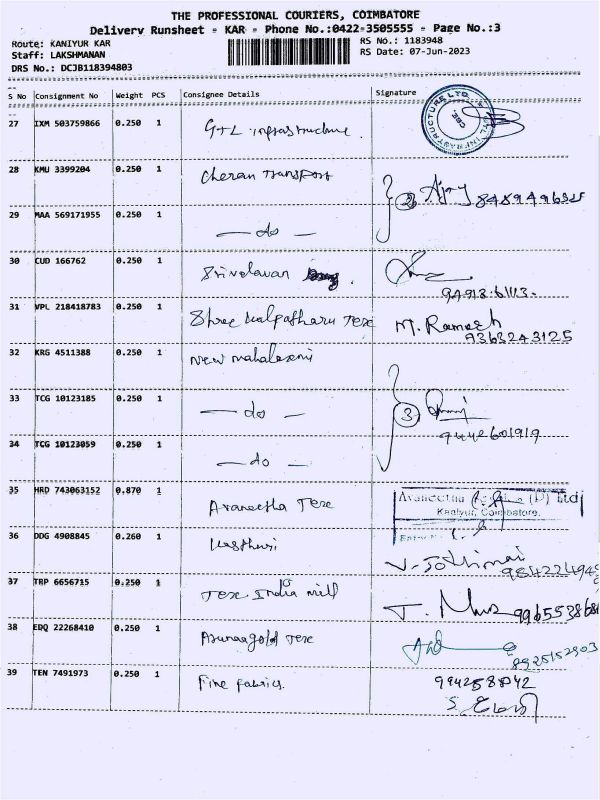 THE PROFESSIONAL COURIERS, COIMBATORE
Delivery Runsheet - KAR - Phone No.:0422-3505555 - Page No.:3
Route: KANIYUR KAR
RS No.: 1183948
Staff: LAKSHMANAN
RS Date: 07-Jun-2023
DRS No.: DCJB118394803
S No Consignment No Weight PCS Consignee Details Signature
27 IXM 503759866 0.250 1 GTL infrastructure.
28 KMU 3399204 0.250 1 Cheran Transport
29 MAA 569171955 0.250 1 — do —
2
30 CUD 166762 0.250 1 Srivelavan
31 VPL 218418783 0.250 1 Shree Kalpatharu Tex M. Ramesh
9363243125
32 KRG 4511388 0.250 1 New mahalaxmi
33 TCG 10123185 0.250 1 — do —
3
9442601919
34 TCG 10123059 0.250 1 — do —
35 HRD 743063152 0.870 1 Avaneetha Tex
Kaniyur, Coimbatore.
36 DDG 4908845 0.260 1 Kasthuri
V. Jothimai
37 TRP 6656715 0.250 1 Tex India mill
38 EDQ 22268410 0.250 1 Arunaagold Tex
8925152903
39 TEN 7491973 0.250 1 Fine fabrics.